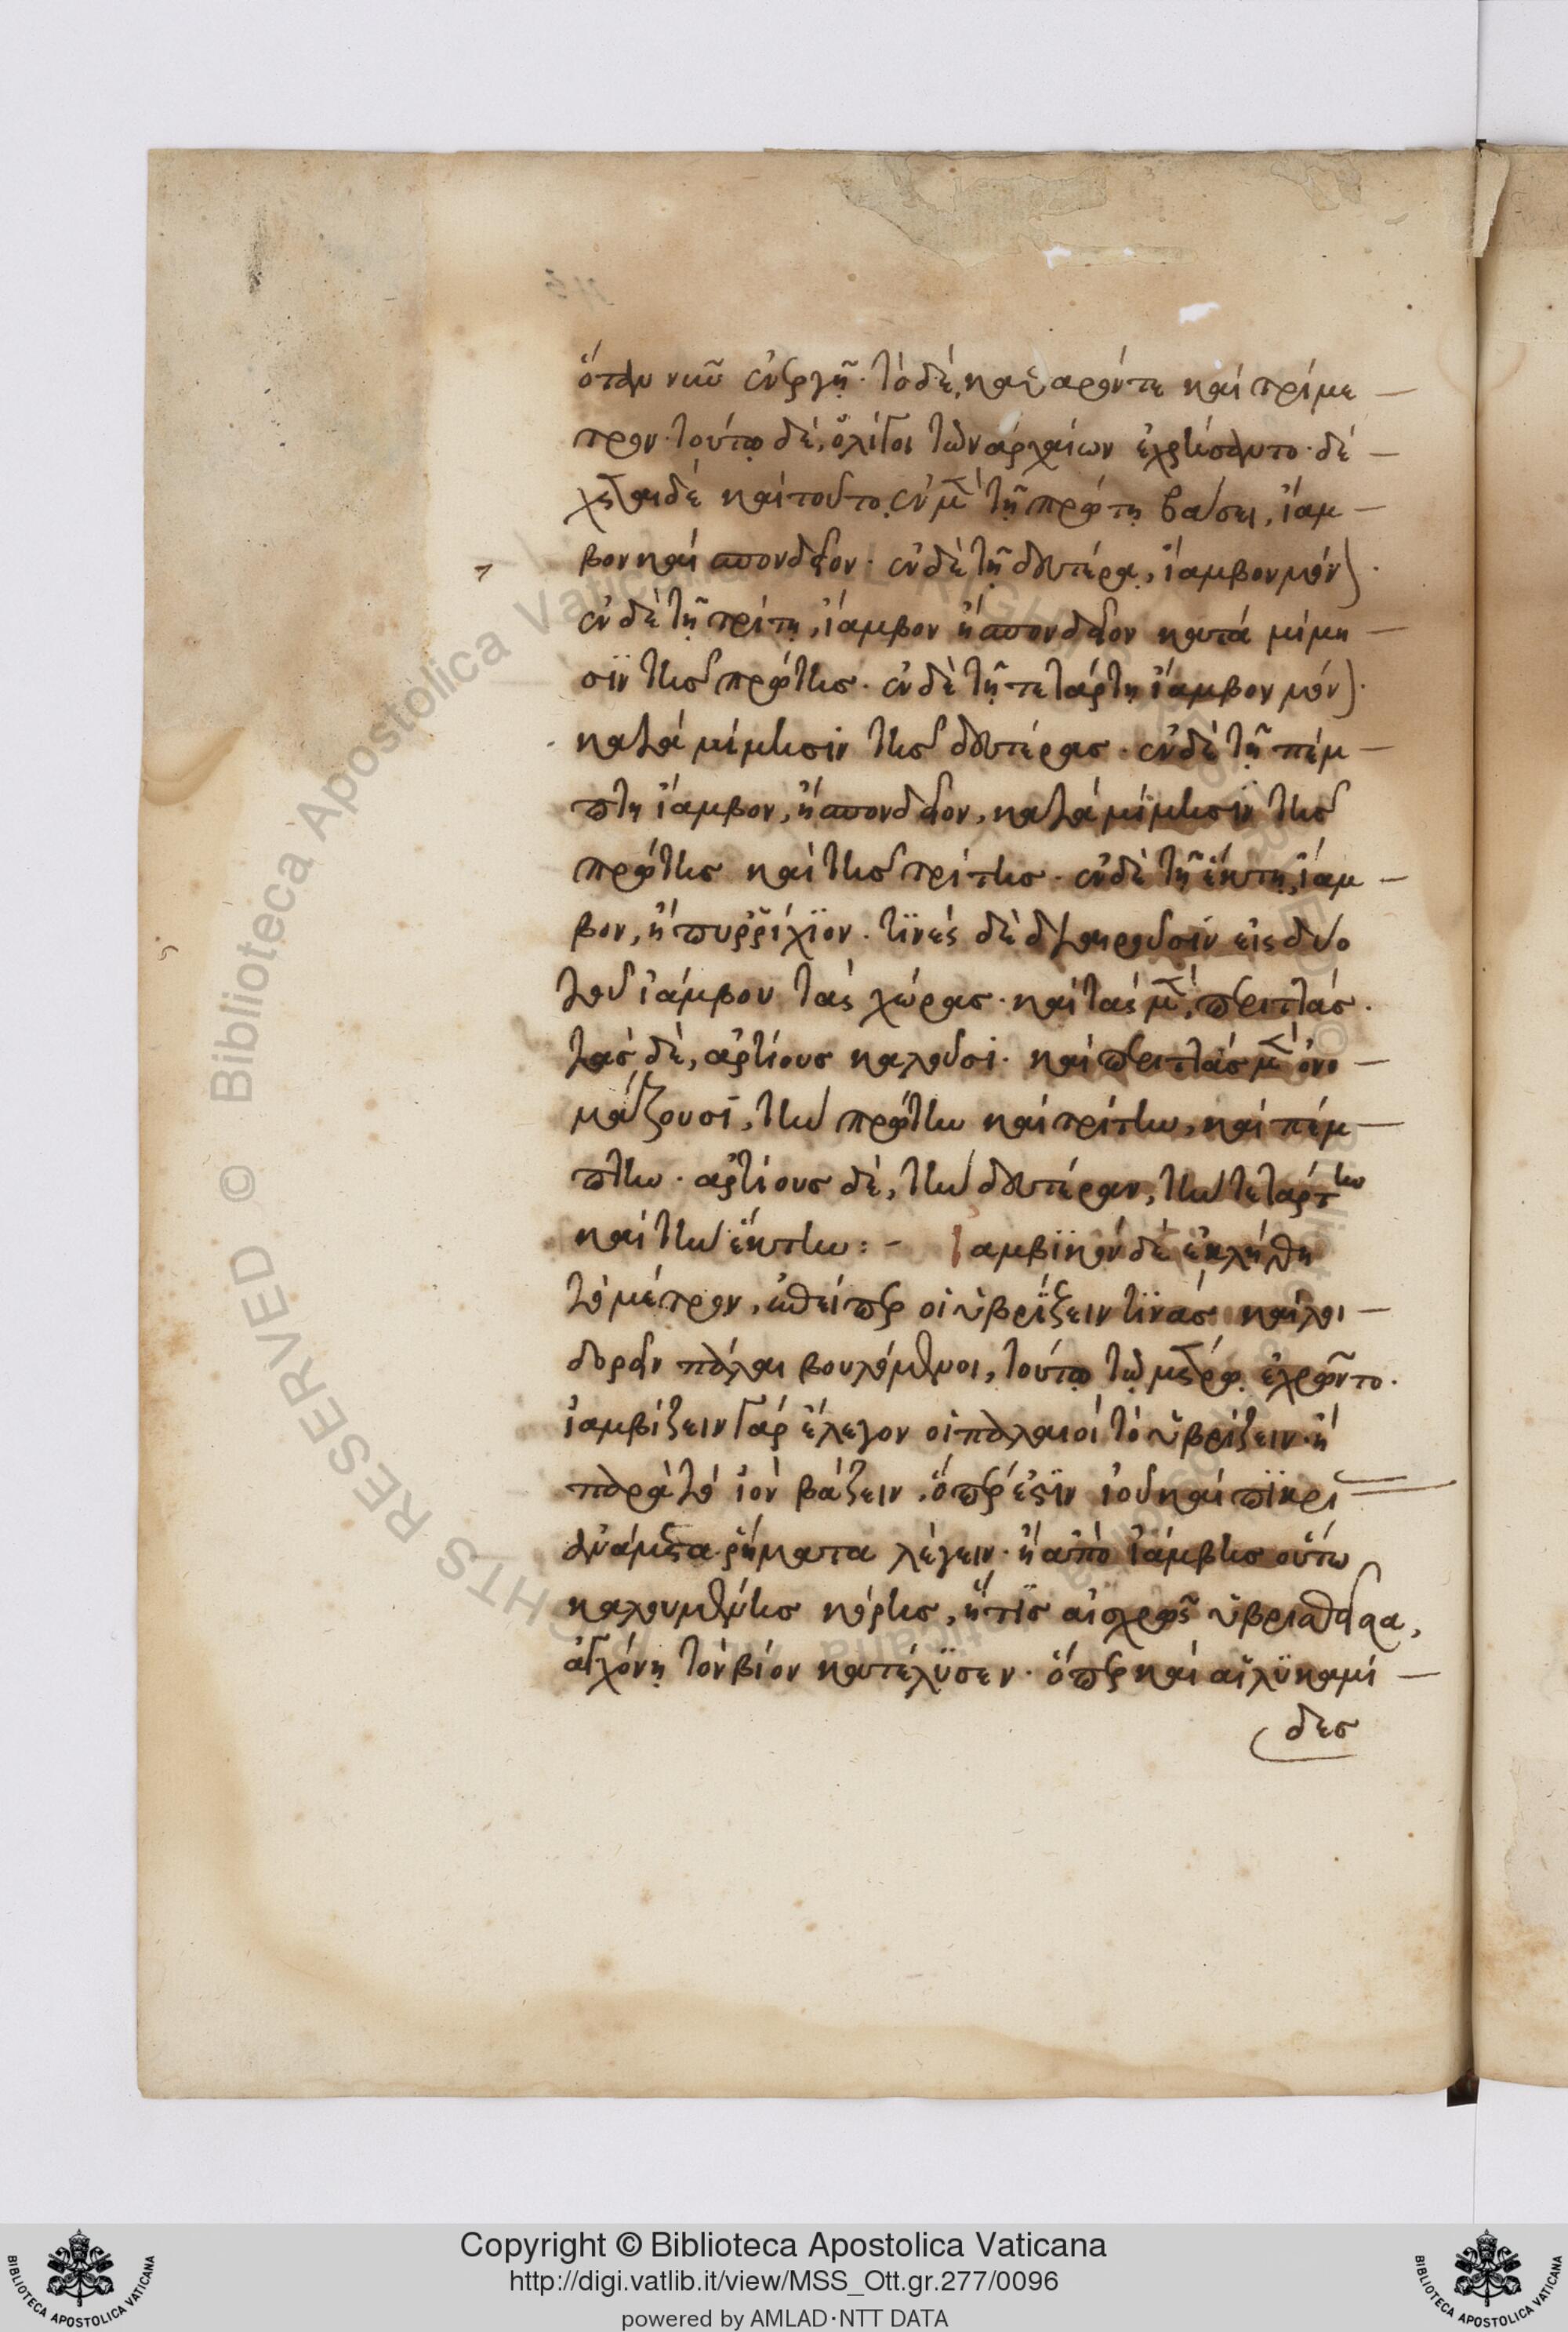 ὅταν νιῶ ἐνεργῇ· τὸ δὲ, καὶ ἀρόν τε καὶ τρίμε
τρον· τούτῳ δὲ, ὀλίγοι τῶν ἀρχαίων ἐχρήσαντο· δέ
χεται δὲ καὶ τοῦτο, ἐν μὲν τῇ πρώτῃ βάσει, ἴαμ
βον καὶ σπονδεῖον· ἐν δὲ τῇ δευτέρᾳ, ἴαμβον μόνον·
ἐν δὲ τῇ τρίτῃ, ἴαμβον ἢ σπονδεῖον κατὰ μίμη
σϊν τῆς πρώτης· ἐν δὲ τῇ τετάρτῃ ἴαμβον μόνον·
κατὰ μίμησιν τῆς δευτέρας· ἐν δὲ τῇ πέμ
πτῃ ἴαμβον, ἢ σπονδεῖον, κατὰ μίμησιν τῆς
πρώτης καὶ τῆς τρίτης· ἐν δὲ τῇ ἕκτῃ, ἴαμ
βον, ἢ πυρρίχϊον· τϊνές δὲ διαιροῦσιν εἰς δύο
τοῦ ἰάμβου τὰς χώρας· καὶ τὰς μὲν, περιττάς·
τὰς δὲ, ἀρτίους καλοῦσι· καὶ περιττὰς μὲν ὀνο
μάζουσι, τὴν πρώτην καὶ τρίτην, καὶ πέμ
πτην· ἀρτίους δὲ, τὴν δευτέραν, τὴν τετάρτην
καὶ τὴν ἕκτην:- Ἰαμβϊκὸν δὲ ἐκλήθη
τὸ μέτρον, ἐπείπερ οἱ ὑβρίζειν τϊνὰς καὶ λοι
δορεῖν πάλαι βουλόμενοι, τούτῳ τῷ μέτρῳ ἐχρῶντο·
ἰαμβίζειν γὰρ ἔλεγον οἱ παλαιοὶ τὸ ὑβρίζειν· ἢ
παρὰ τὸ ἰὸν βάζειν, ὅπερ ἐστὶν ἰοῦ καὶ πϊκρί
ἀνάμεστα ῥήματα λέγειν· ἢ ἀπὸ ἰάμβης οὕτω
καλουμένης κόρης, ἥτϊς αἰσχρῶς ὑβρισθεῖσα,
ἀγχόνῃ τὸν βίον κατέλϋσεν· ὅπερ καὶ αἱ λϋκαμί
δες
Copyright © Biblioteca Apostolica Vaticana
http://digi.vatlib.it/view/MSS_Ott.gr.277/0096
powered by AMLAD·NTT DATA